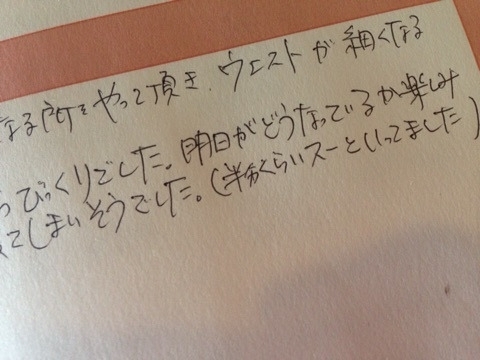 なる所をやって頂き、ウエストが細くなる
っびっくりでした。明日がどうなっているか楽しみ
てしまいそうでした。(半分くらいスーといってました)